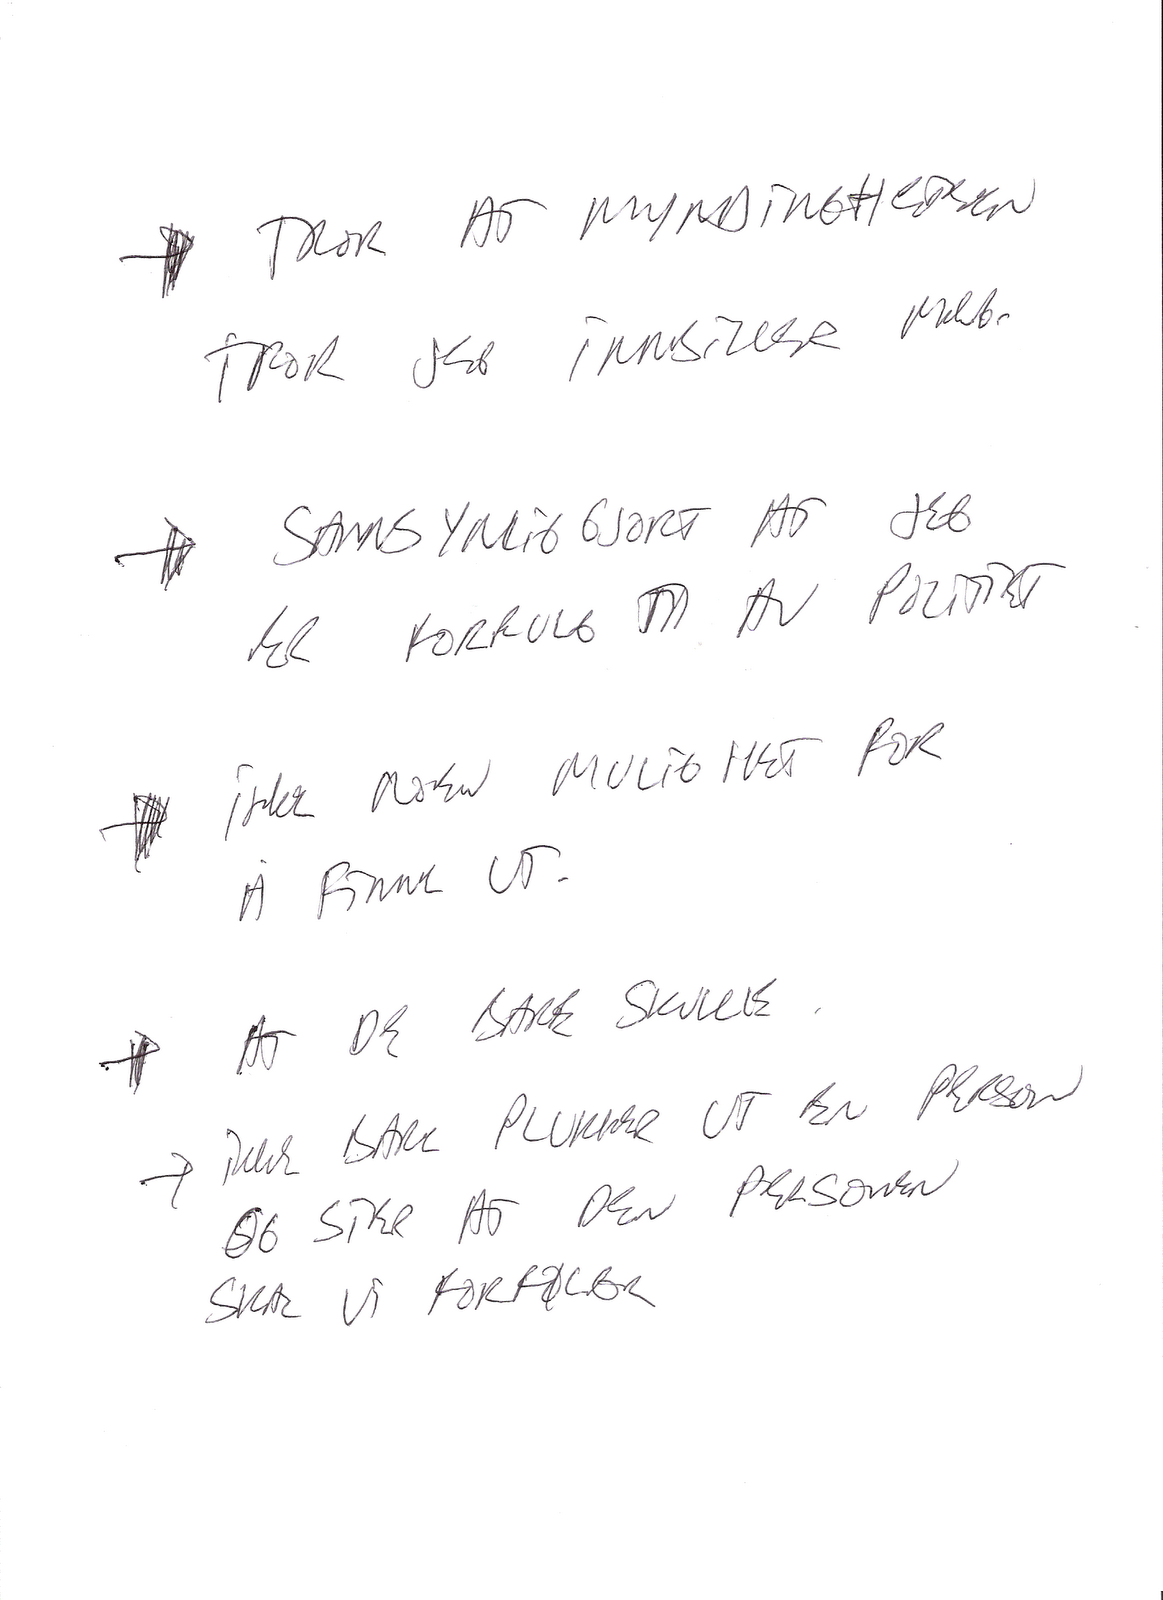 → TROR AT MYNDINGHETEN
TROR JEG INNBILLER MEG.
→ SANNSYNLIGGJORT AT JEG
ER FORFULGT AV POLITIET
→ IKKE NOEN MULIGHET FOR
Å FINNE UT.
→ AT DE BARE SKULLE.
→ IKKE BARE PLUKKER UT EN PERSON
OG SIER AT DEN PERSONEN
SKAL VI FORFØLGER